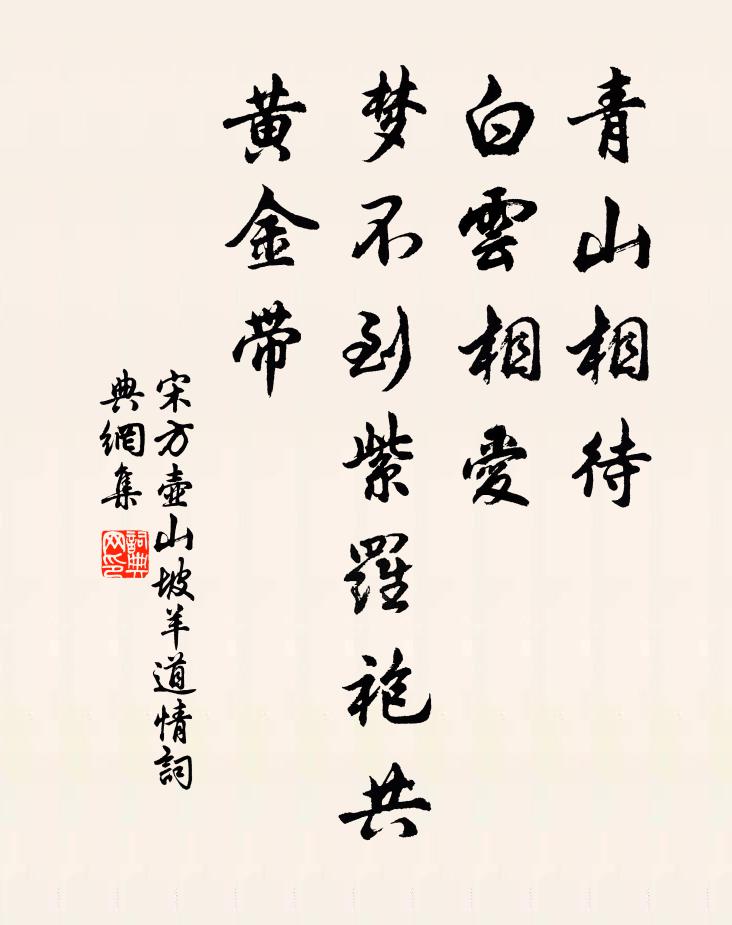 青山相待
白雲相愛
梦不到紫羅袍共
黄金带
宋方壶山坡羊道情詞
典網集
詞典
网印